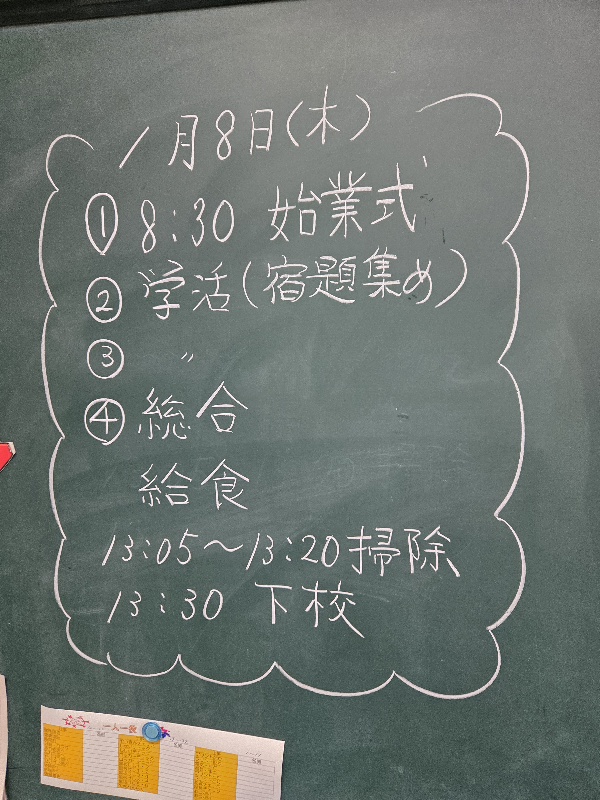 1月8日(木)
① 8:30 始業式
② 学活(宿題集め)
③ 〃
④ 総合
給食
13:05～13:20 掃除
13:30 下校